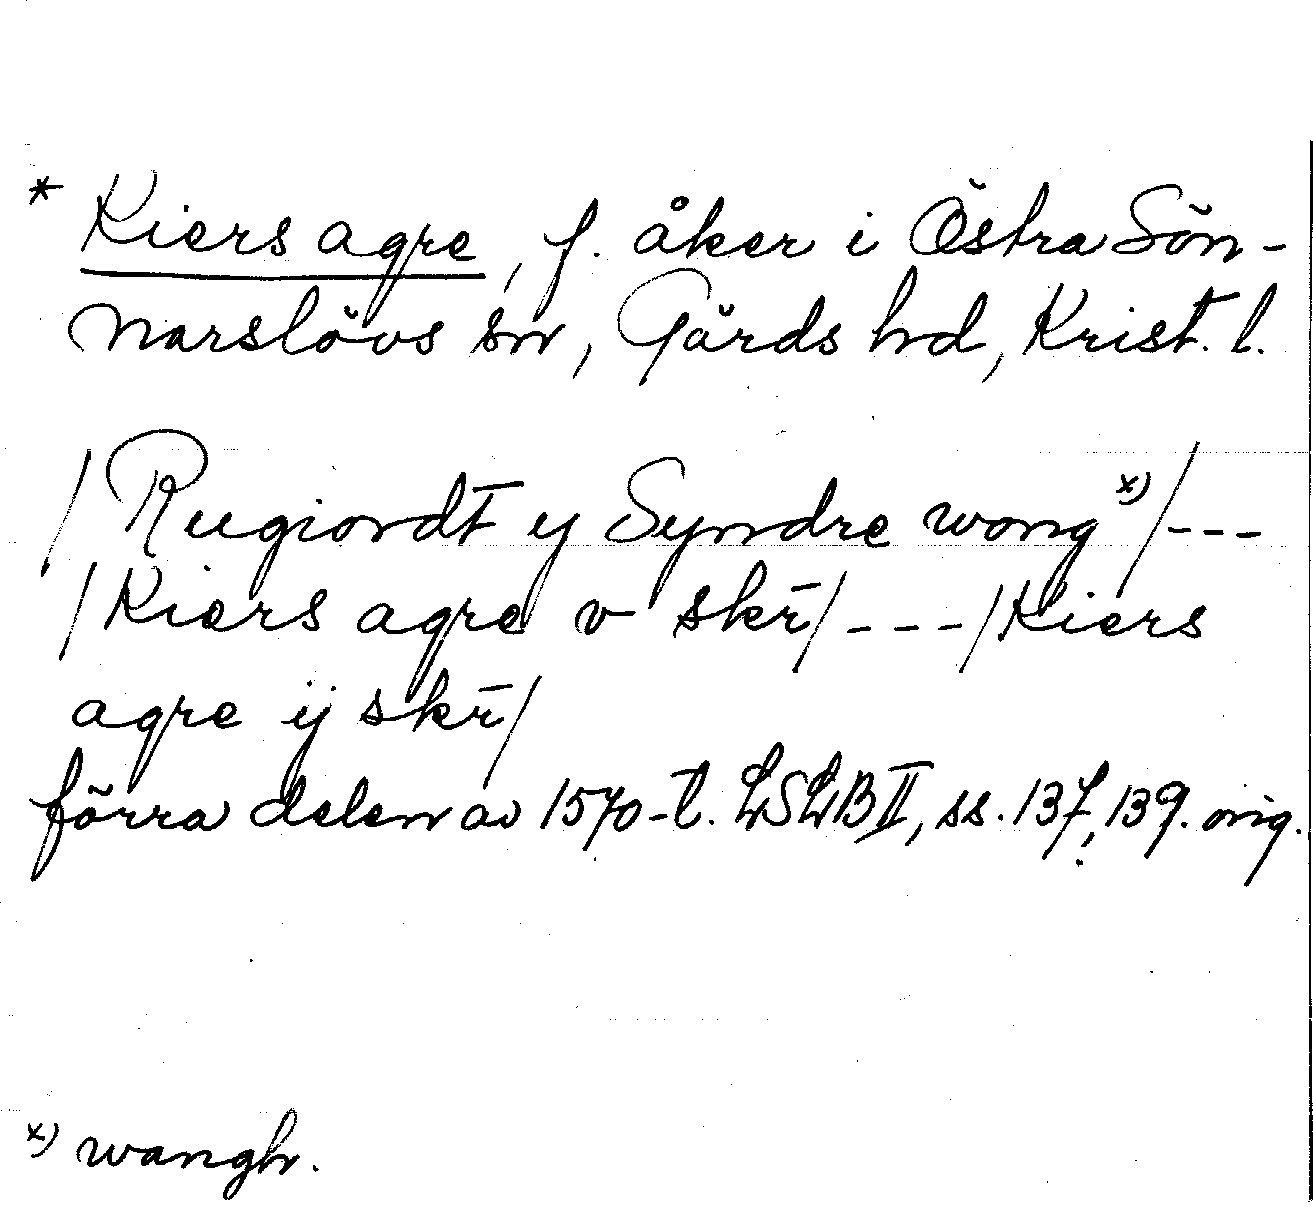 * Kiers agre, f. åker i Östra Sön-
narslövs sn, Gärds hd, Krist. l.
/Rugiordt y Syndre wong x)/---
/Kiers agre v skr̄/---/Kiers
agre ij skr̄/
förra delen av 1570-t. LSLB II, ss. 137, 139. orig.
x) wangh.